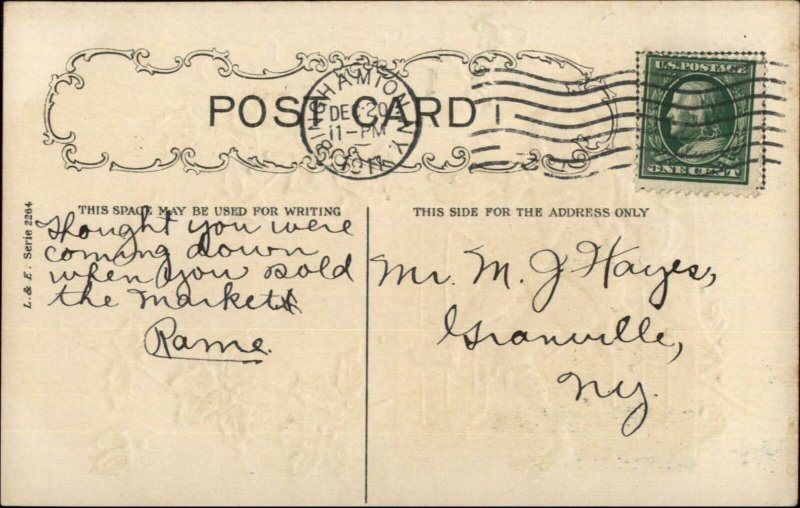 POST CARD
BINGHAMTON, N.Y.
DEC 20
11-PM
1911
U.S. POSTAGE
ONE CENT
THIS SPACE MAY BE USED FOR WRITING
THIS SIDE FOR THE ADDRESS ONLY
L. & E. Serie 2264
Thought you were
coming down
when you sold
the market
Mr. M. J Hayes,
Granville,
NY.